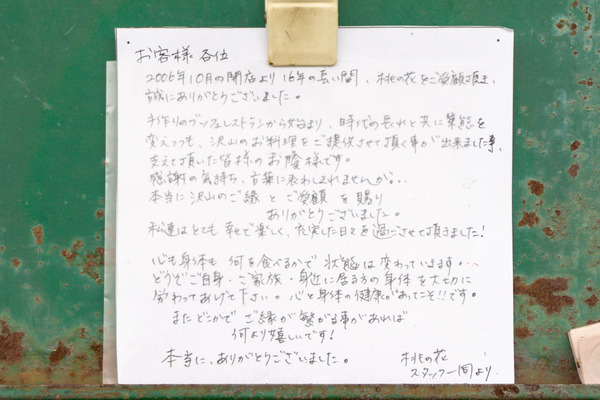 お客様 各位
2006年10月の開店より 16年の長い間、桃の花をご愛顧頂き、
誠にありがとうございました。
手作りのブッフェレストランから始まり、時代の流れと共に業態を
変えつつも、沢山のお料理をご提供させて頂く事が出来ました事、
支えて頂いた皆様のお陰様です。
感謝の気持ち、言葉に表わしきれませんが…
本当に沢山のご縁と ご愛顧を賜り
ありがとうございました。
私達はとても 幸せで楽しく、充実した日々を過ごさせて頂きました!
心も身体も 何を食べるかで 状態は変わっていきます…
どうぞご自身・ご家族・身近に居る方の身体を大切に
労わってあげて下さい。心と身体の健康があってこそ!!です。
またどこかで ご縁が繋がる事があれば
何より嬉しいです!
本当に、ありがとうございました。
桃の花
スタッフ一同より